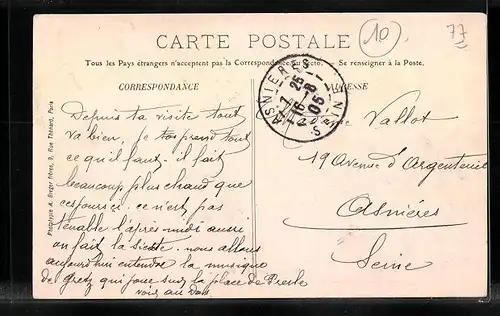 10
77
CARTE POSTALE
Tous les Pays étrangers n'acceptent pas la Correspondance au recto. – Se renseigner à la Poste.
CORRESPONDANCE
ADRESSE
Phototypie A. Breger frères, 9, Rue Thénard, Paris
ASNIERES
12 25
16 - 8
05
SEINE
Depuis ta visite tout
va bien, je prend tout
ce qu'il faut - il fait
beaucoup plus chaud que
ces jours ci. ce n'est pas
tenable l'après midi aussi
on fait la sieste - nous allons
aujourd'hui entendre la musique
de gretz qui joue sur la place de Presle
Vallot
19 Avenue d'Argenteuil
Asnières
Seine